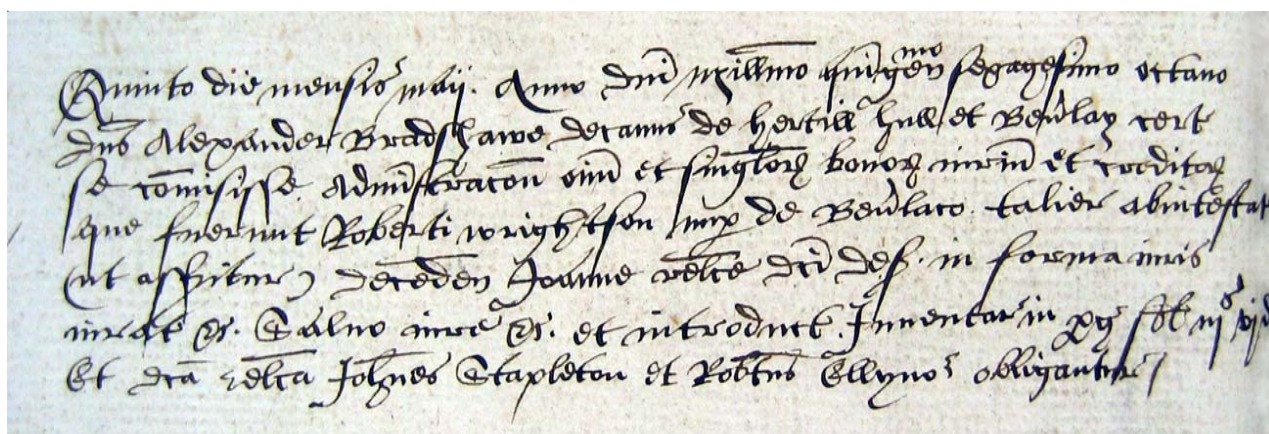 Quinto die mensis maij. Anno dni millimo quingen mo sexagesimo octavo
dns Alexander Bradshawe decanus de Hertill hull et Bevlay cert
se comisisse Admistracoen oim et singlor bonor iurium et creditor
que fuerunt Roberti wrightson nup de Bevlaco talier abintestat
(ut asseritur) deceden Joanne relce dci def. in forma iuris
iurat &c. Salvo iure &c. et introduct. Inventar in
Et dca relca Johnes Stapleton et Robtus Ellynor obligantur